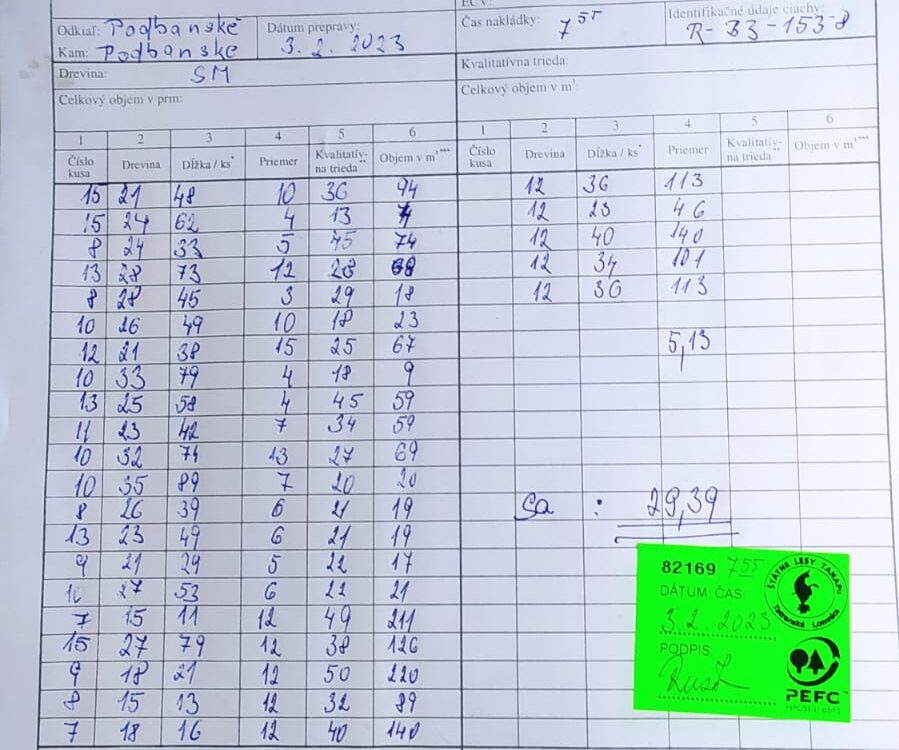 EČV:
Odkiaľ: Podbanské Dátum prepravy: Čas nakládky: 7 55 Identifikačné údaje ciachy:
Kam: Podbanske 3. 2. 2023 R-B3-153-8
Drevina: SM Kvalitatívna trieda:
Celkový objem v prm: Celkový objem v m³:
1 2 3 4 5 6 1 2 3 4 5 6
Číslo kusa Drevina Dĺžka / ks* Priemer Kvalitatív- na trieda** Objem v m³*** Číslo kusa Drevina Dĺžka / ks* Priemer Kvalitatív- na trieda** Objem v m³***
15 21 48 10 36 94 12 36 113
15 24 62 4 13 12 23 46
8 24 33 5 45 74 12 40 140
13 28 73 12 28 68 12 34 101
8 28 45 3 29 18 12 36 113
10 26 49 10 18 23
12 21 38 15 25 67 5,13
10 33 79 4 18 9
13 25 58 4 45 59
11 23 42 7 34 59
10 32 74 13 27 69
10 35 89 7 20 20
8 26 39 6 21 19 Sa : 29,39
13 23 49 6 21 19
9 21 29 5 22 17
10 27 53 6 22 21
7 15 11 12 49 211
15 27 79 12 38 126
9 18 21 12 50 220
8 15 13 12 32 89
7 18 16 12 40 140
82169 7 55
DÁTUM ČAS
3. 2. 2023
PODPIS
ŠTÁTNE LESY TANAPu
Tatranská Lomnica
PEFC™